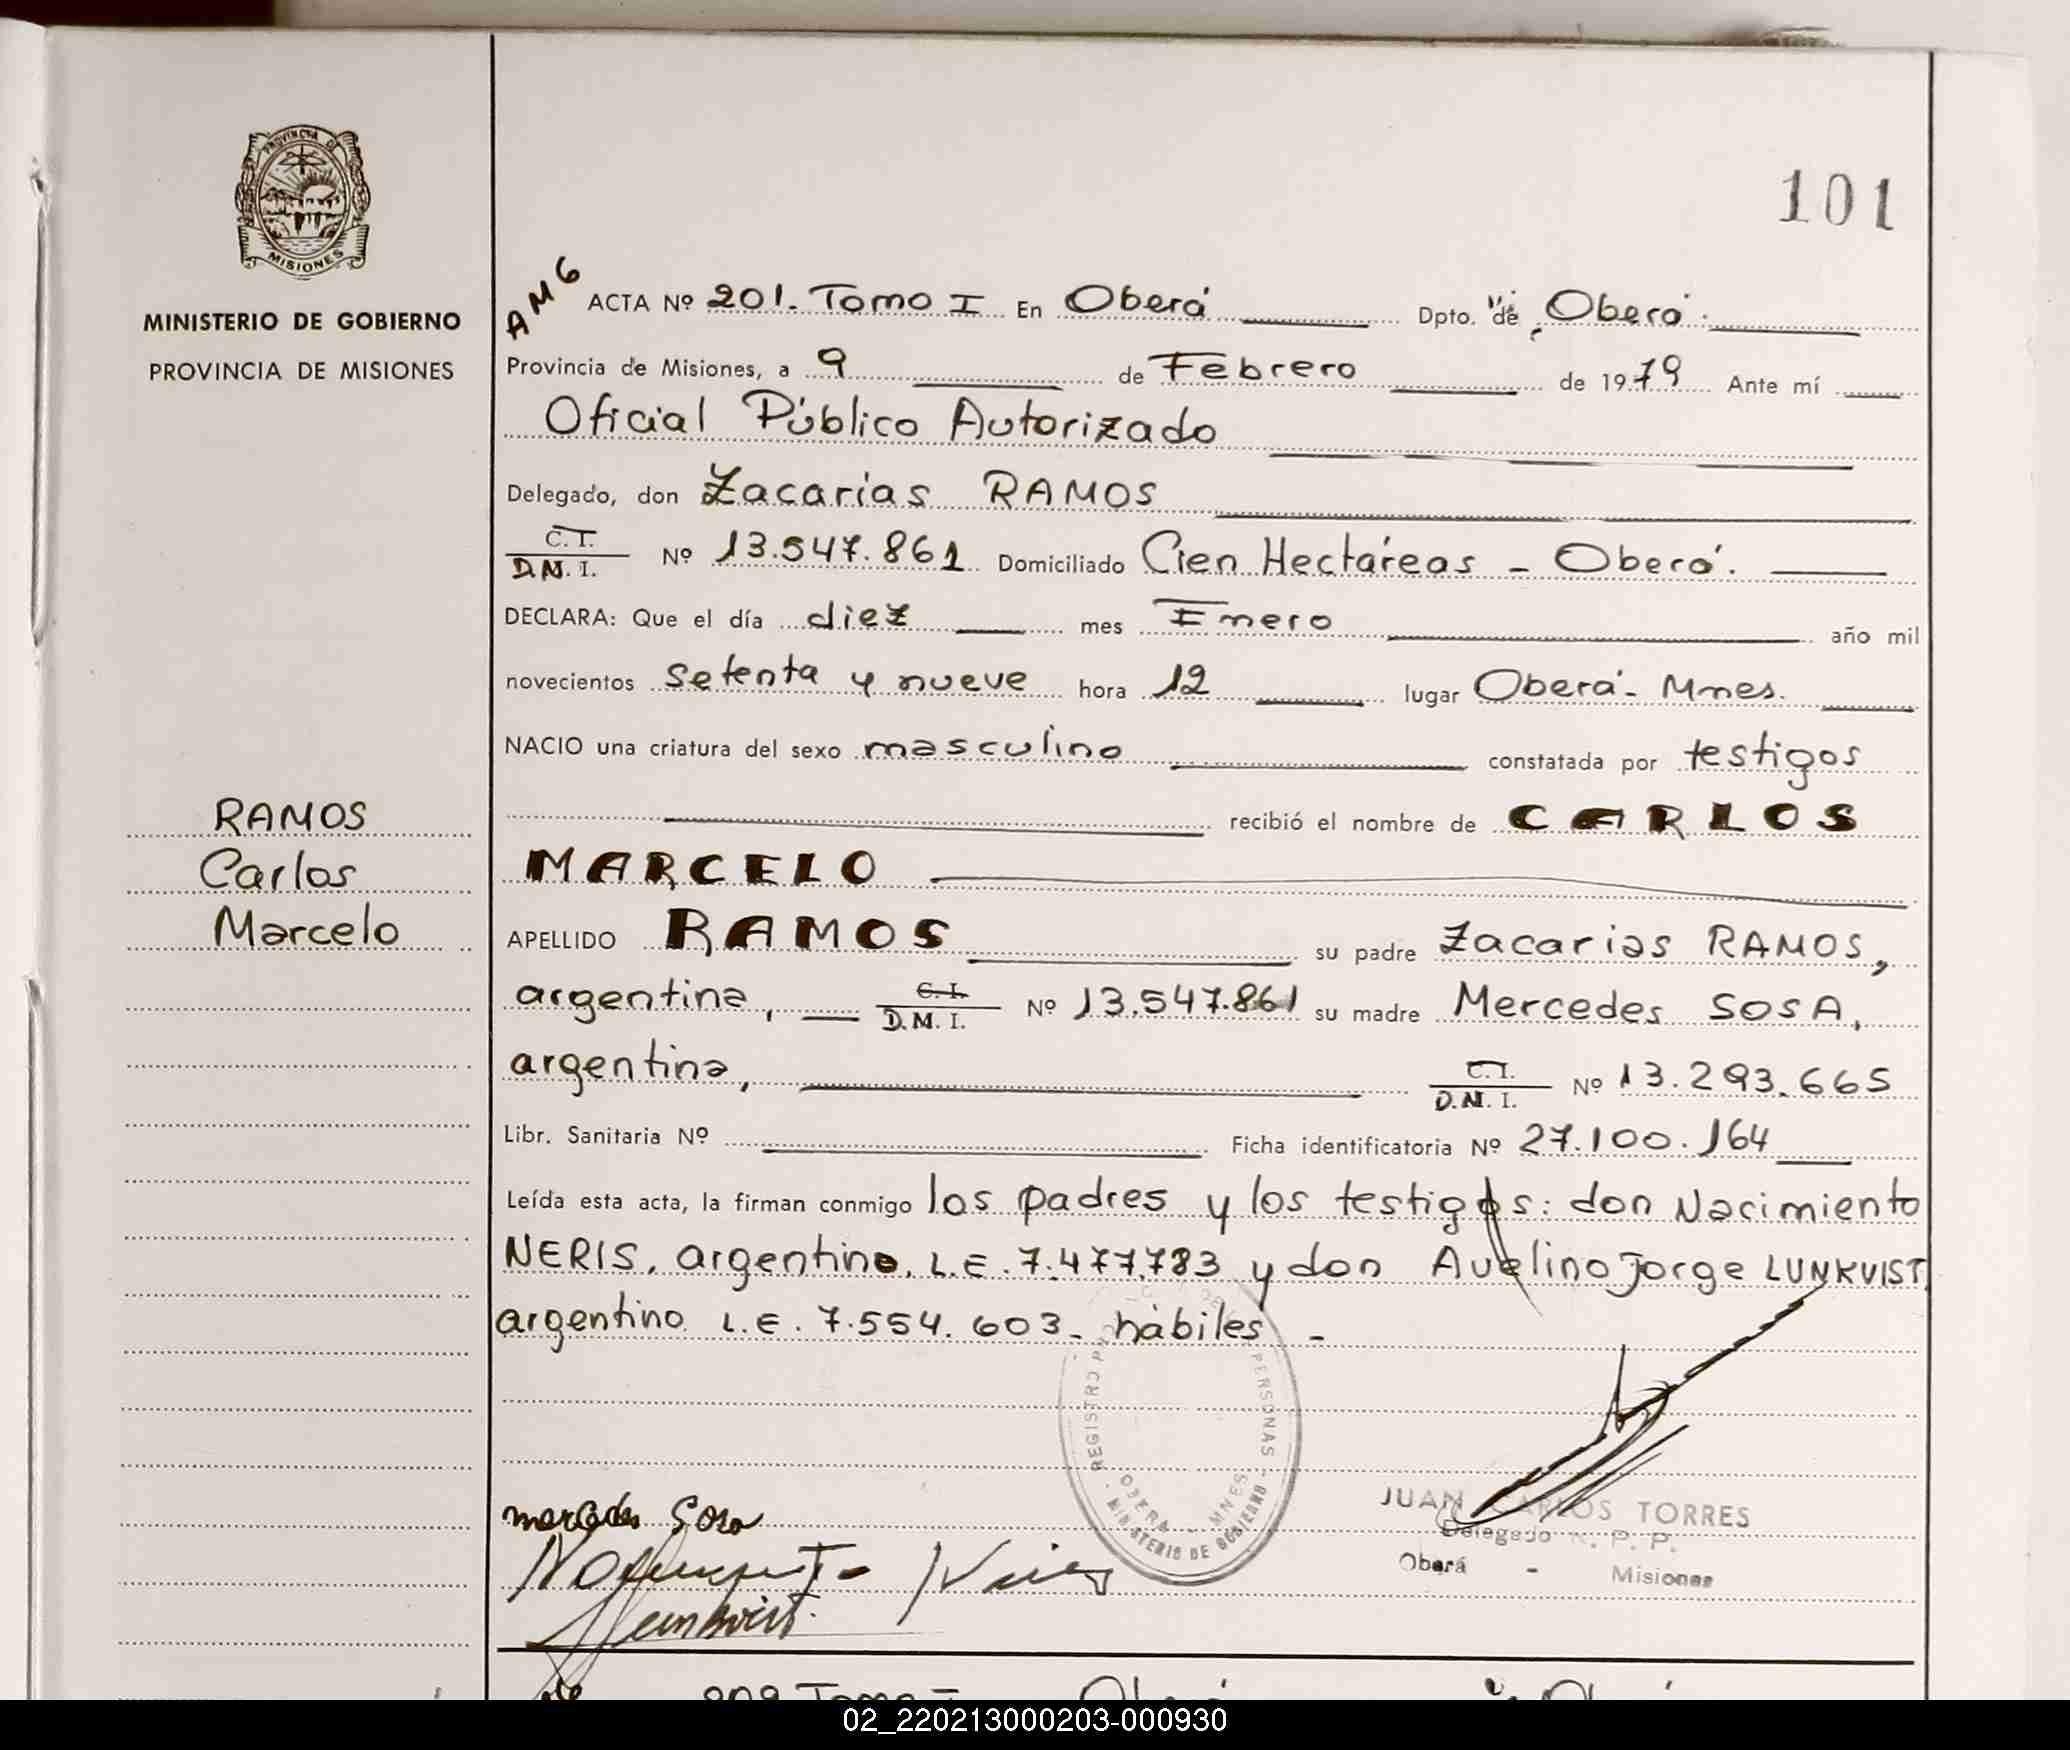 101
PROVINCIA DE
MISIONES
MINISTERIO DE GOBIERNO
PROVINCIA DE MISIONES
AMG
ACTA Nº 201. Tomo I En Oberá Dpto. de Oberá.
Provincia de Misiones, a 9 de Febrero de 1979 Ante mí
Oficial Público Autorizado
Delegado, don Zacarías RAMOS
C.I.
D.N.I. Nº 13.547.861 Domiciliado Cien Hectáreas - Oberá.
DECLARA: Que el día diez mes Enero año mil
novecientos setenta y nueve hora 12 lugar Oberá- Mnes.
NACIO una criatura del sexo masculino constatada por testigos
recibió el nombre de CARLOS
MARCELO
RAMOS
Carlos
Marcelo
APELLIDO RAMOS su padre Zacarias RAMOS,
argentina, C.I.
D.M.I. Nº 13.547.861 su madre Mercedes SOSA,
argentina, C.I.
D.N.I. Nº 13.293.665
Libr. Sanitaria Nº Ficha identificatoria Nº 27.100.164
Leída esta acta, la firman conmigo los padres y los testigos: don Nacimiento
NERIS, argentino, L.E. 7.477.783 y don Avelino Jorge LUNKVIST
argentino L.E. 7.554.603- hábiles -
REGISTRO PERSONAS
OBERA - MNES
MINISTERIO DE GOBIERNO
mercedes Sosa
JUAN CARLOS TORRES
Delegado R. P. P.
Oberá - Misiones
Tomo I
02_220213000203-000930